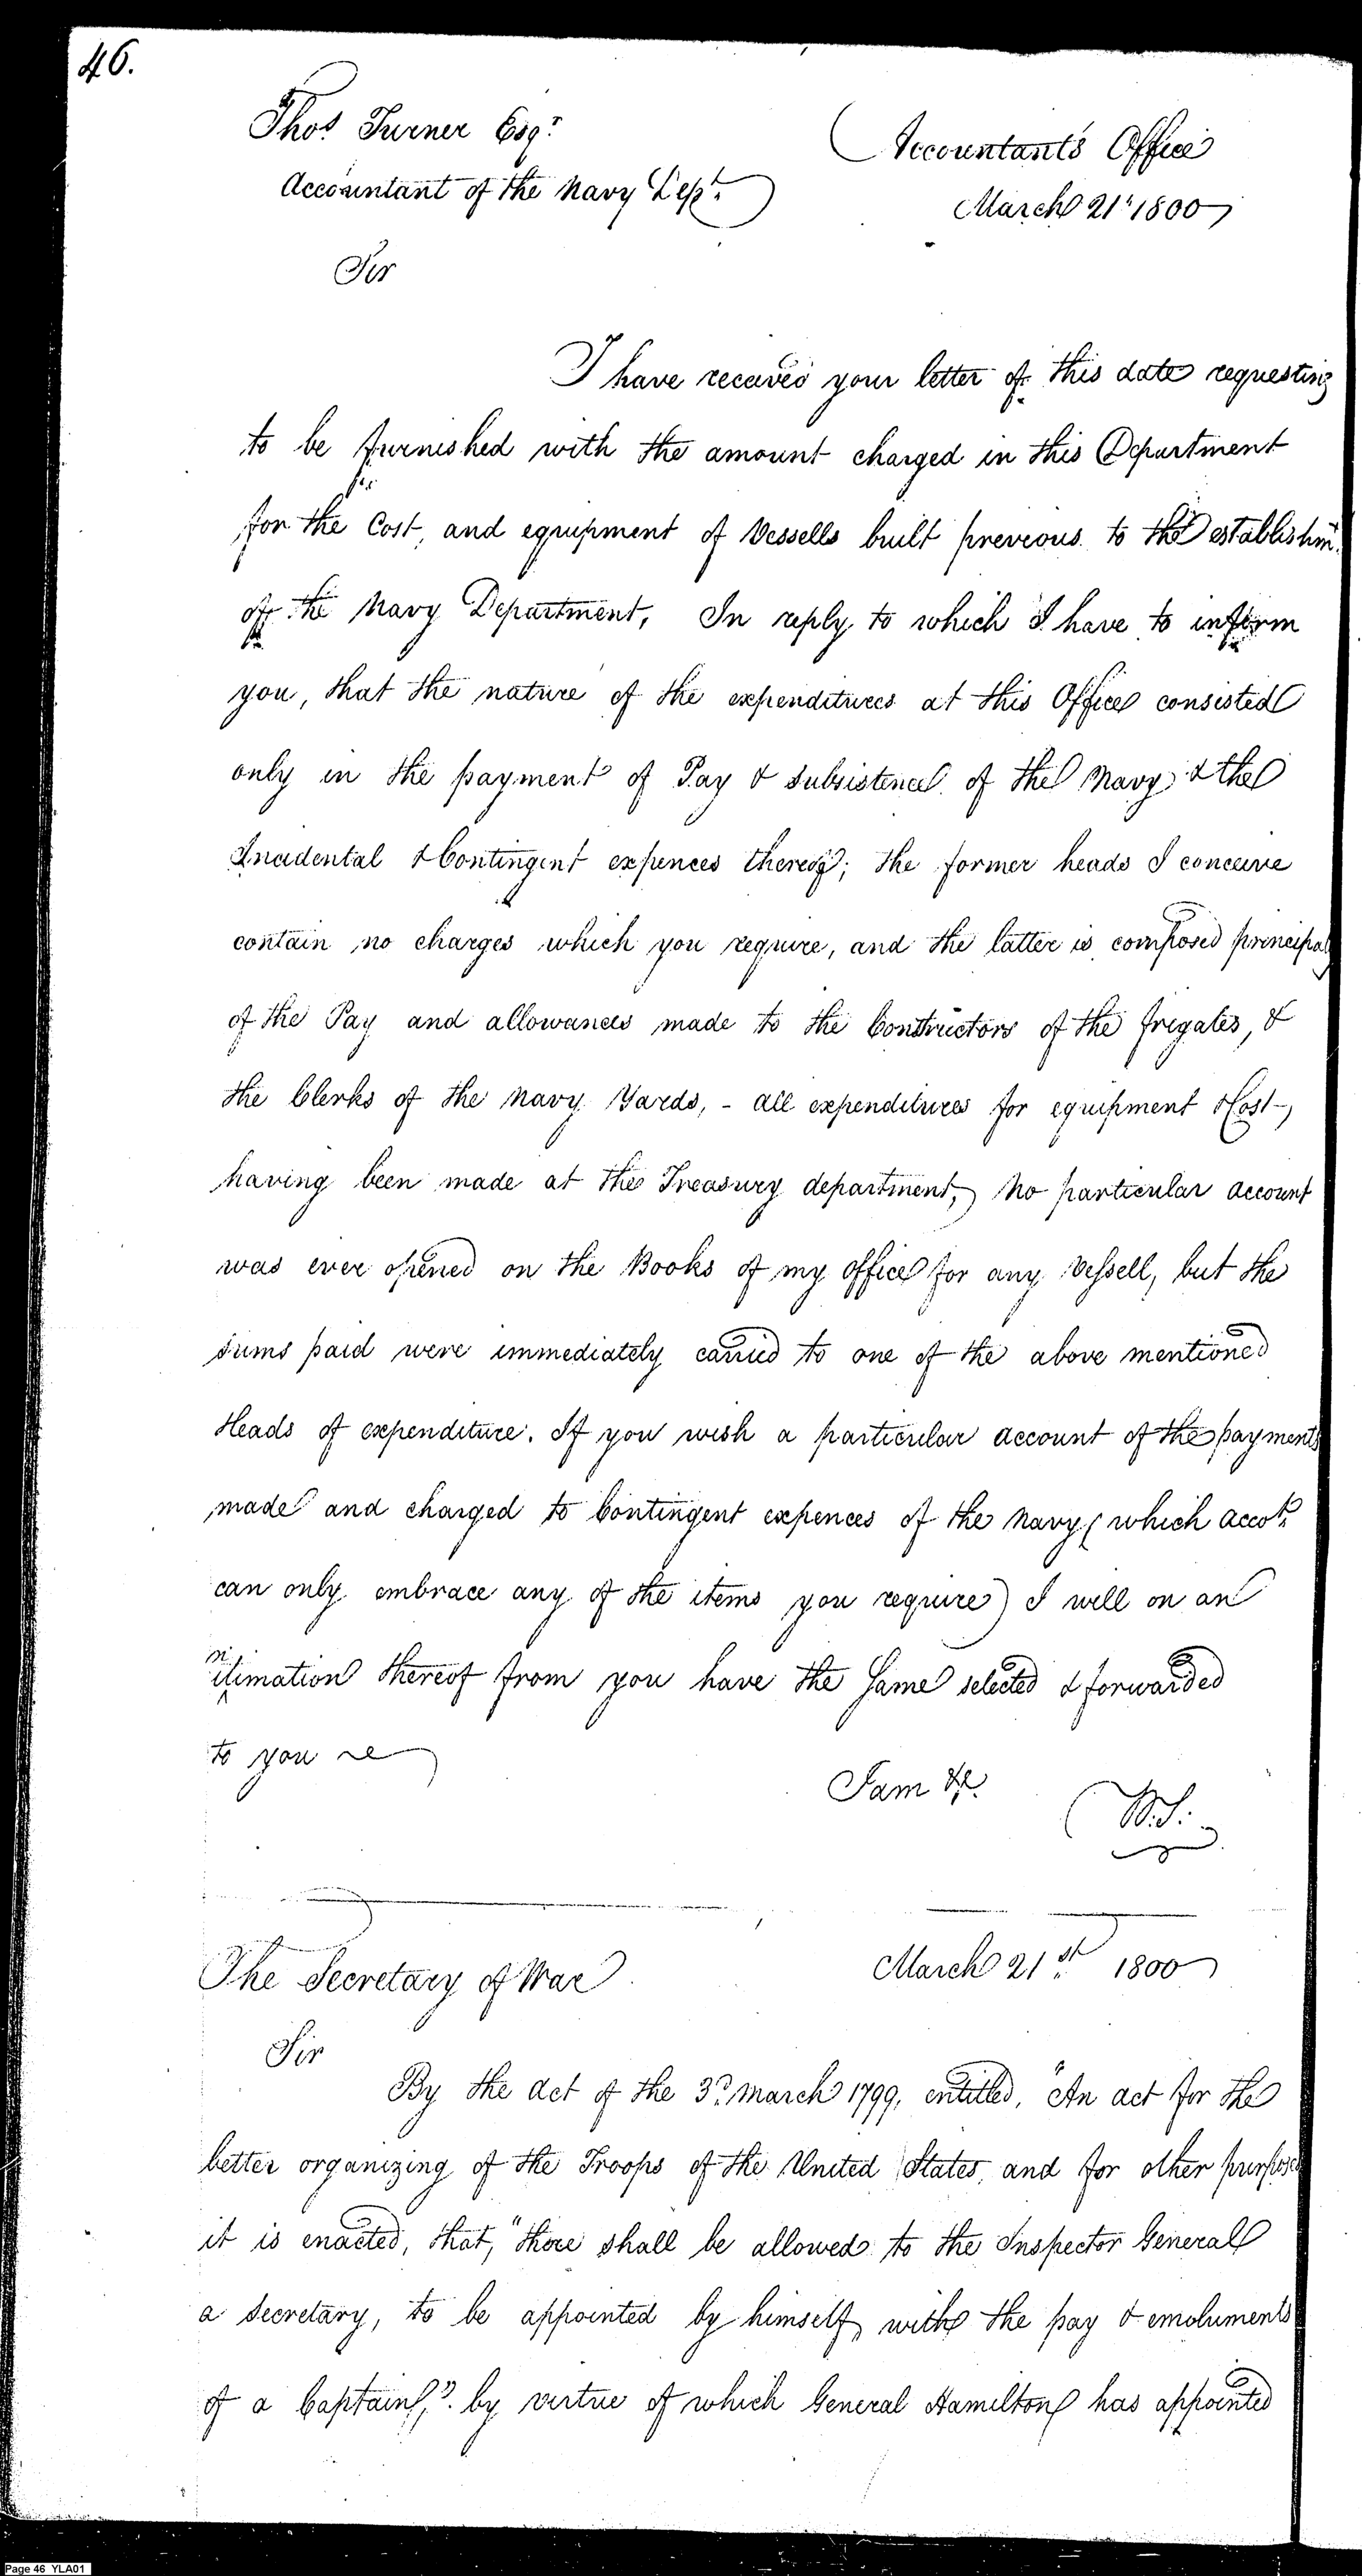 46.
Thos. Turner Esqr.
Accountant of the Navy Dept.
Accountant's Office
March 21st 1800
Sir
I have received your letter of this date requesting
to be furnished with the amount charged in this Department
for the Cost, and equipment of Vessells built previous to the establishm.
of the Navy Department, In reply to which I have to inform
you, that the nature of the expenditures at this Office consisted
only in the payment of Pay & Subsistence of the Navy & the
Incidental & Contingent expences thereof; the former heads I conceive
contain no charges which you require, and the latter is composed principaly
of the Pay and allowances made to the Constructors of the frigates, &
the Clerks of the Navy Yards, - all expenditures for equipment & Cost
having been made at the Treasury department, No particular account
was ever opened on the Books of my office for any Vessell, but the
sums paid were immediately carried to one of the above mentioned
Heads of expenditure. If you wish a particular account of the payments
made and charged to Contingent expences of the Navy (which accot.
can only embrace any of the items you require) I will on an
intimation thereof from you have the same selected & forwarded
to you
I am &c.
W.S.
The Secretary of War
March 21st. 1800
Sir
By the act of the 3d. March 1799, entitled, "An act for the
better organizing of the Troops of the United States, and for other purposes
it is enacted, that, "there shall be allowed to the Inspector General
a Secretary, to be appointed by himself, with the pay & emoluments
of a Captain,". by virtue of which General Hamilton has appointed
Page 46 YLA01